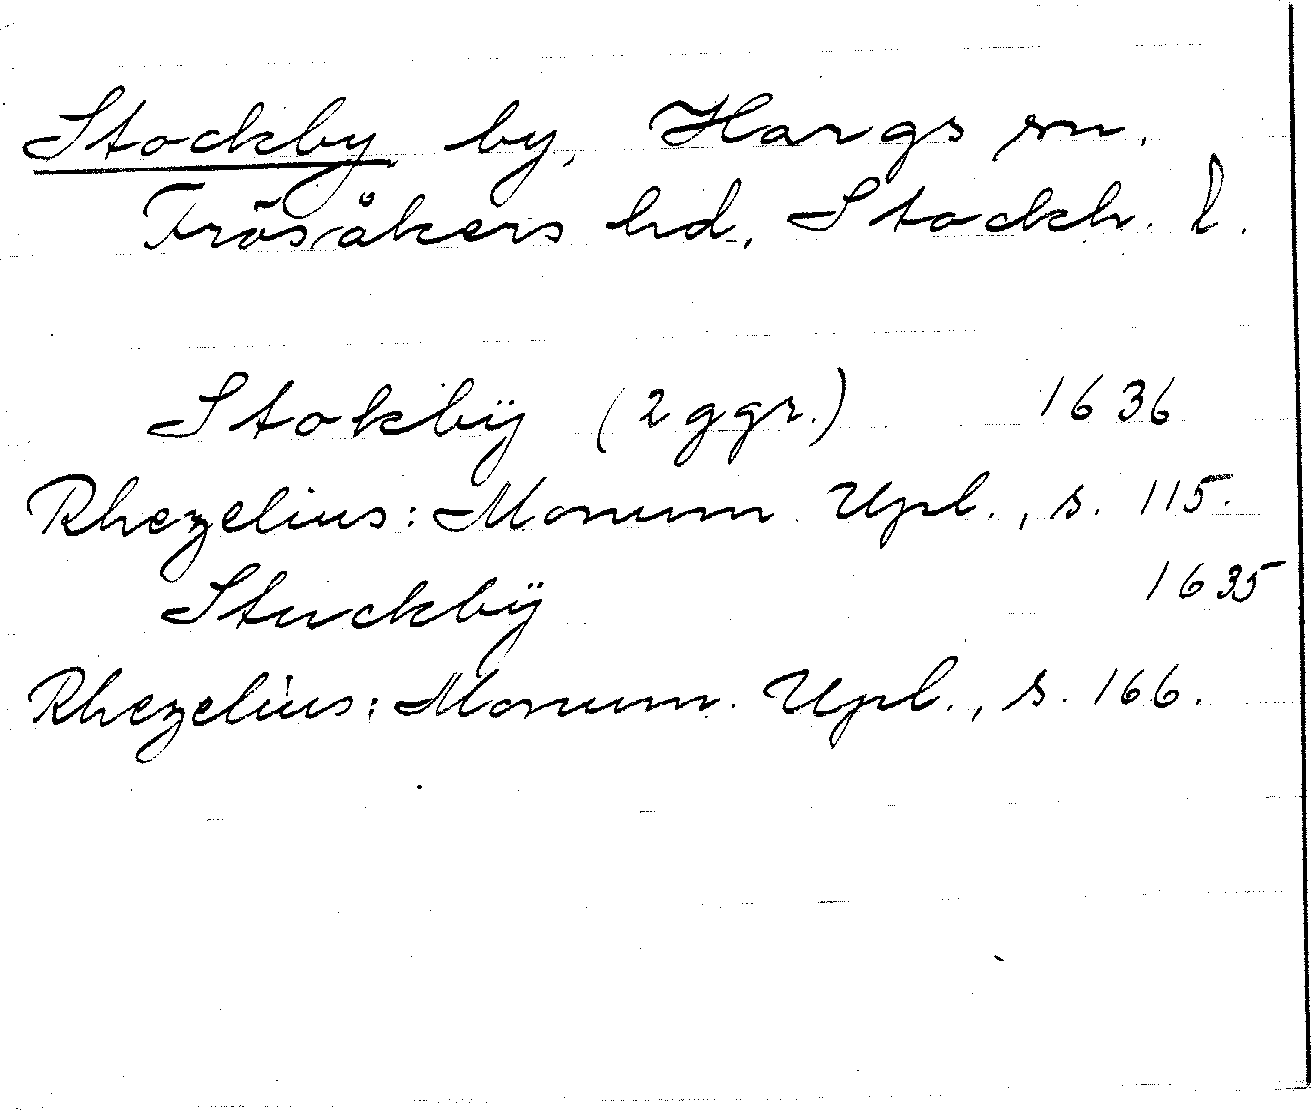 Stockby by, Hargs sn.
Frösåkers hd, Stockh. l.
Stokbÿ (2 ggr.) 1636
Rhezelius: Monum. Upl., s. 115.
Stuckbÿ 1635
Rhezelius: Monum. Upl., s. 166.